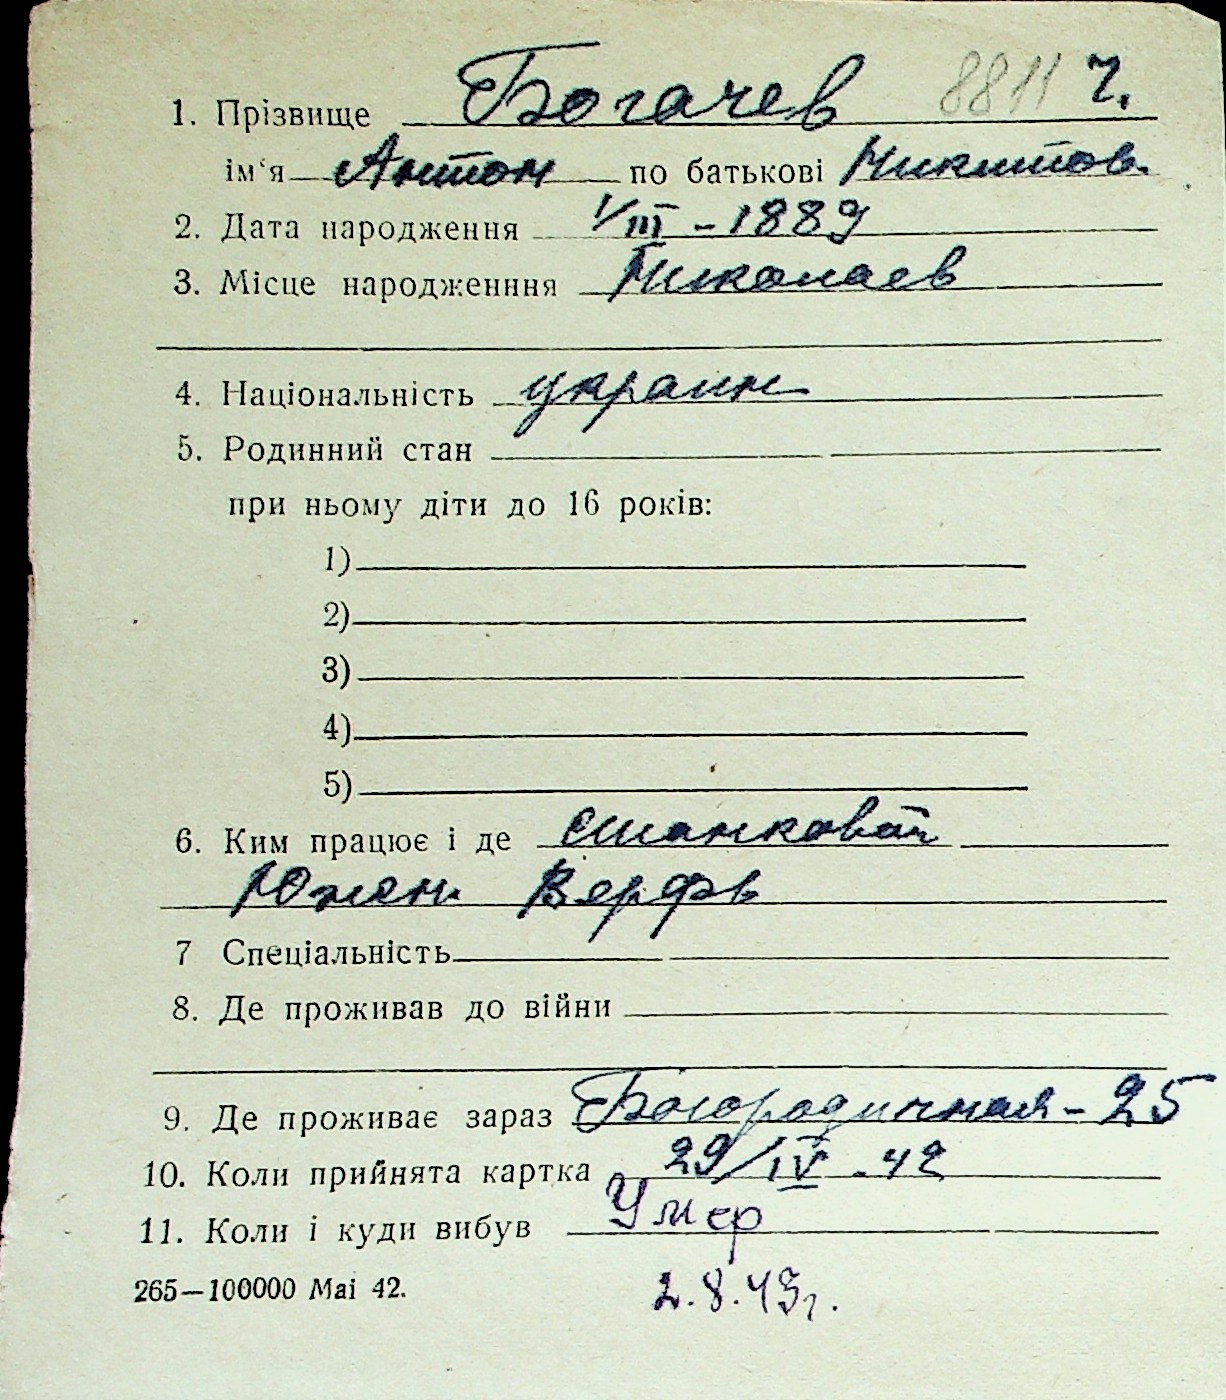 1. Прізвище Богачев 8811 ч.
ім‘я Антон по батькові Никитов.
2. Дата народження 1/III - 1889
3. Місце народженння Николаев
4. Національність украин
5. Родинний стан
при ньому діти до 16 років:
1)
2)
3)
4)
5)
6. Ким працює і де
Южн. Верфь
7 Спеціальність
8. Де проживав до війни
9. Де проживає зараз Богородичная - 25
10. Коли прийнята картка 29/IV - 42
11. Коли і куди вибув Умер
265—100000 Mai 42.
2.8.43г.